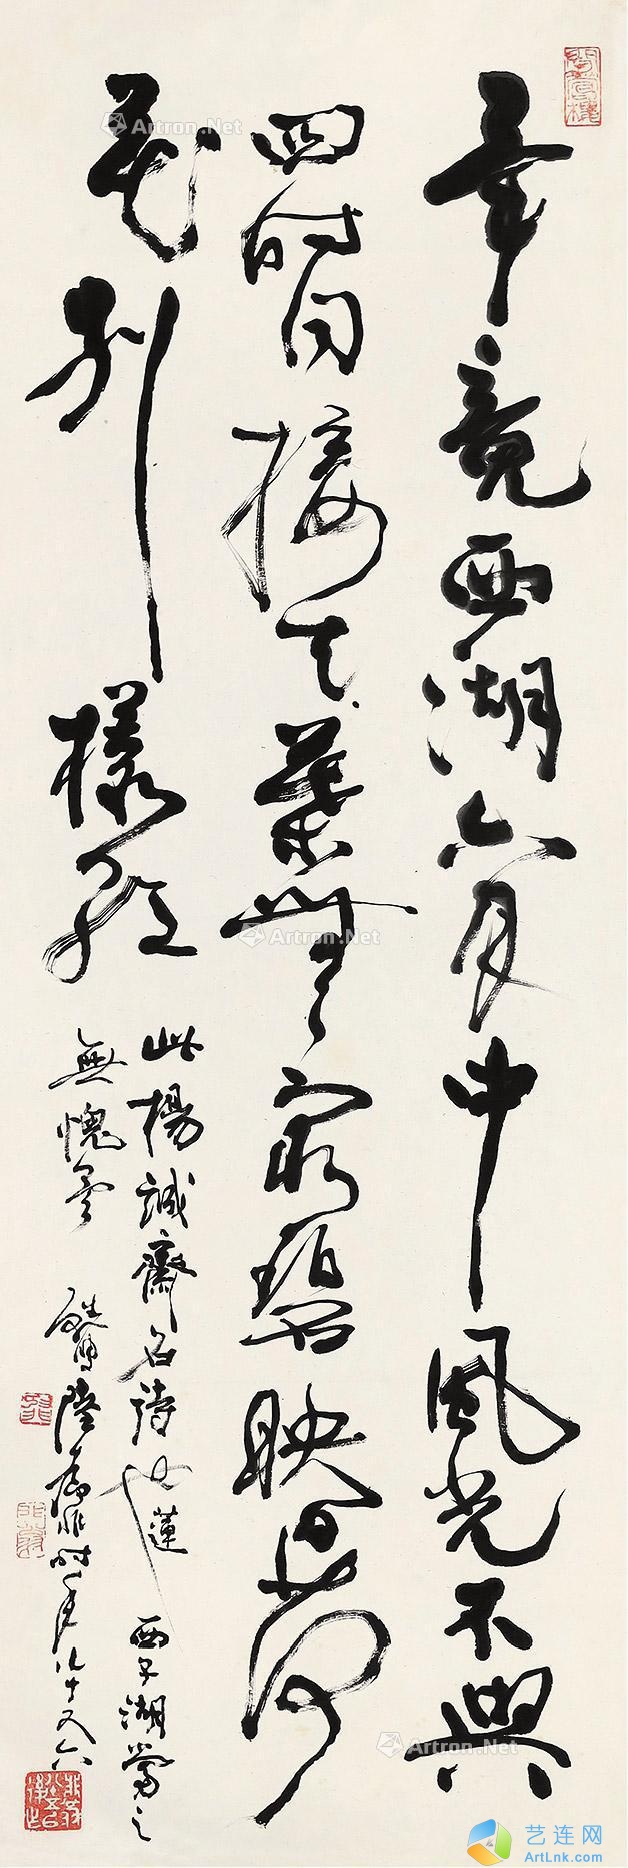 畢竟西湖六月中風光不與
四時同接天葉無窮碧映日荷
花別樣紅
此楊誠齋名詩也 蓮 西子湖當之
無愧矣 陸抑非時年八十又六
Artron.Net
Artron.Net
Artron.Net
艺连网
ArtLnk.com